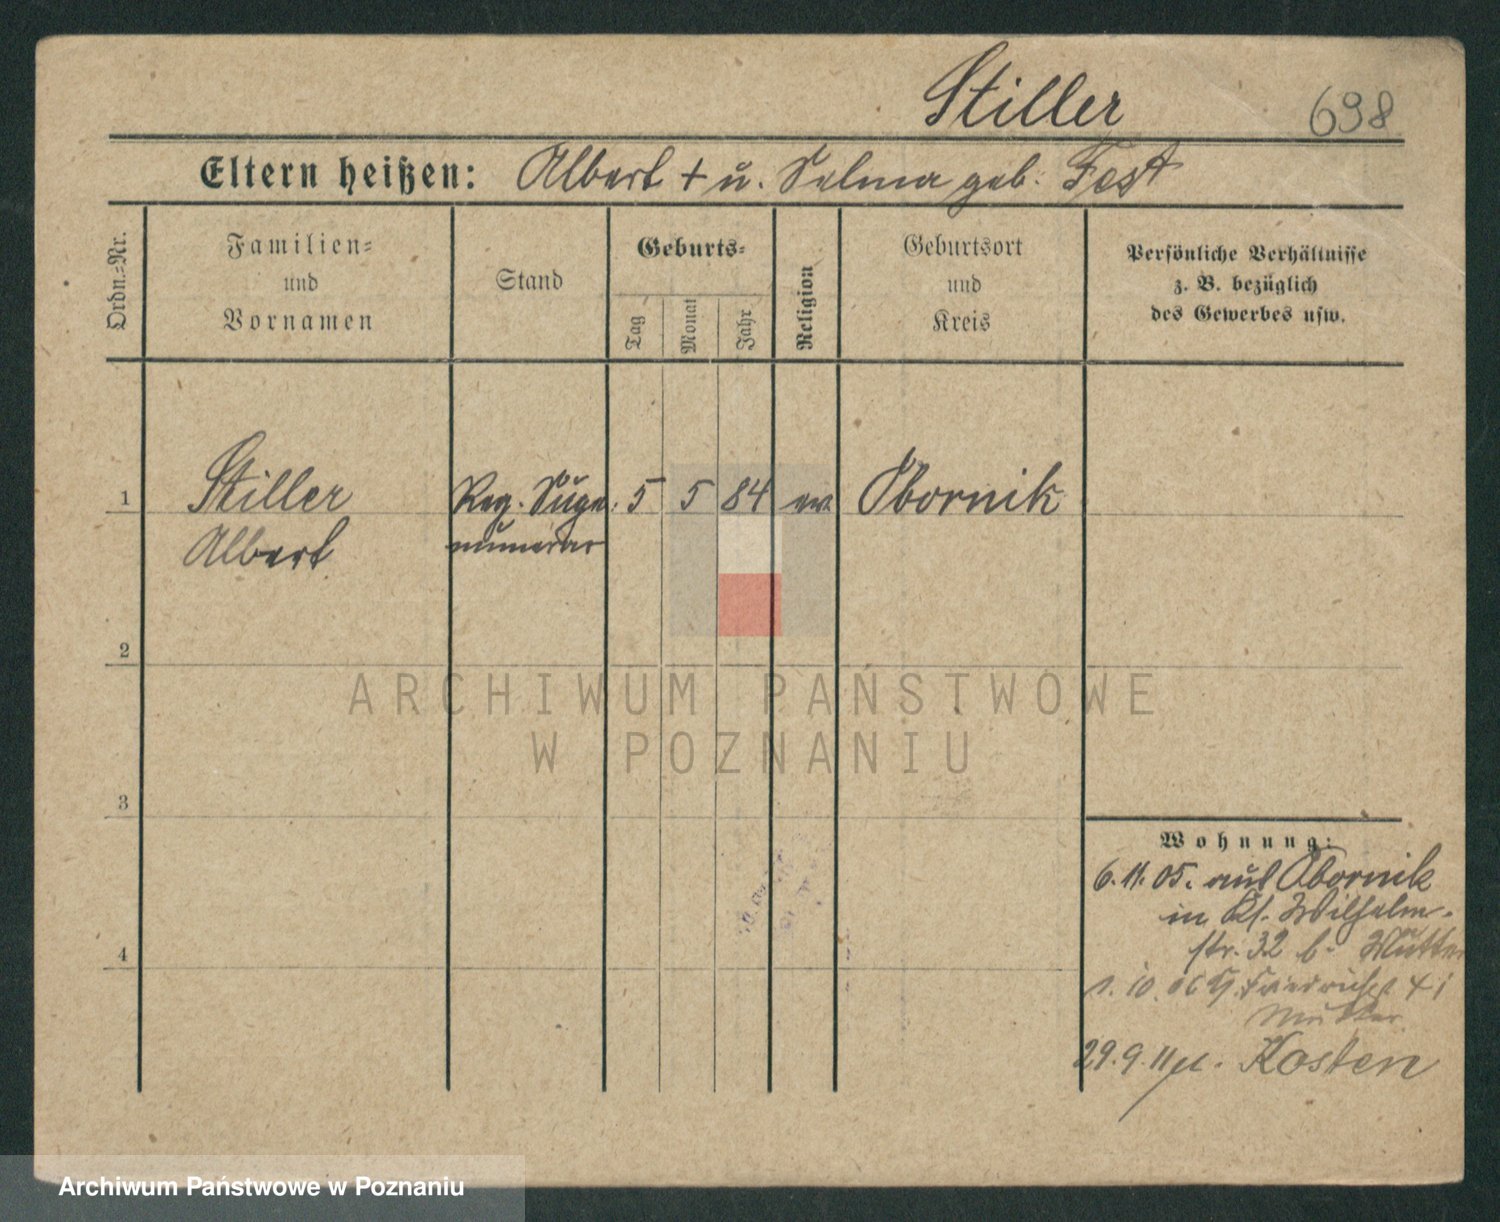 Stiller
698
Eltern heißen: Albert + u. Selma geb. Fest
Ordn.=Nr.
Familien=
und
Vornamen
Stand
Geburts=
Tag
Monat
Jahr
Religion
Geburtsort
und
Kreis
Persönliche Verhältnisse
z. B. bezüglich
des Gewerbes usw.
1
Stiller
Albert
Reg. Supe.
numerar
5
5
84
ev.
Obornik
2
ARCHIWUM PAŃSTWOWE
W POZNANIU
3
4
Wohnung:
6.11.05. aus Obornik
in Wilhelm-
str. 32 b. Mutter
1.10.06
Mutter
29.9.11 Kosten
Archiwum Państwowe w Poznaniu